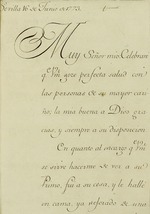 Sevilla 16 de Junio de 1773.
Muy Señor mio. Celebraré
q.e Vm goze perfecta salud con
las personas de su mayor cari-
ño; la mia buena a Dios gra-
cias, y siempre a su disposicion
En quanto al encargo q.e Vm
se sirve hacerme de ver a su
Primo, fui a su casa, y le hallé
en cama, ya aforado de una